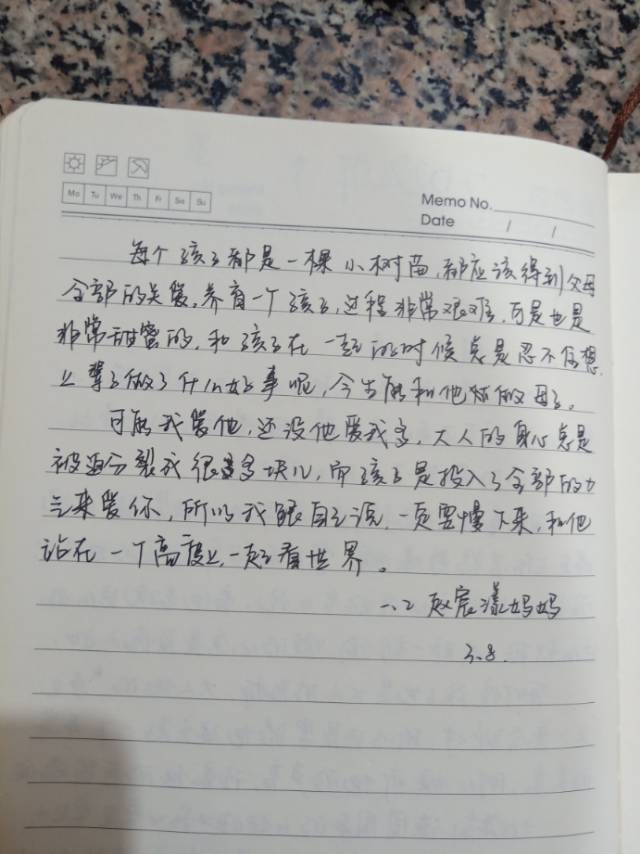 Mo Tu We Th Fr Sa Su
Memo No.
Date / /
每个孩子都是一棵小树苗,都应该得到父母
全部的关爱。养育一个孩子,过程非常艰难,可是也是
非常甜蜜的,和孩子在一起的时候总是忍不住想,
上辈子做了什么好事呢,今生能和他做母子。
可能我爱他,还没他爱我多,大人的身心总是
被迫分裂成很多多块儿,而孩子是投入了全部的力
气来爱你,所以我跟自己说,一定要慢下来,和他
站在一个高度上,一起看世界。
一.2 赵宸漾妈妈
3.8.